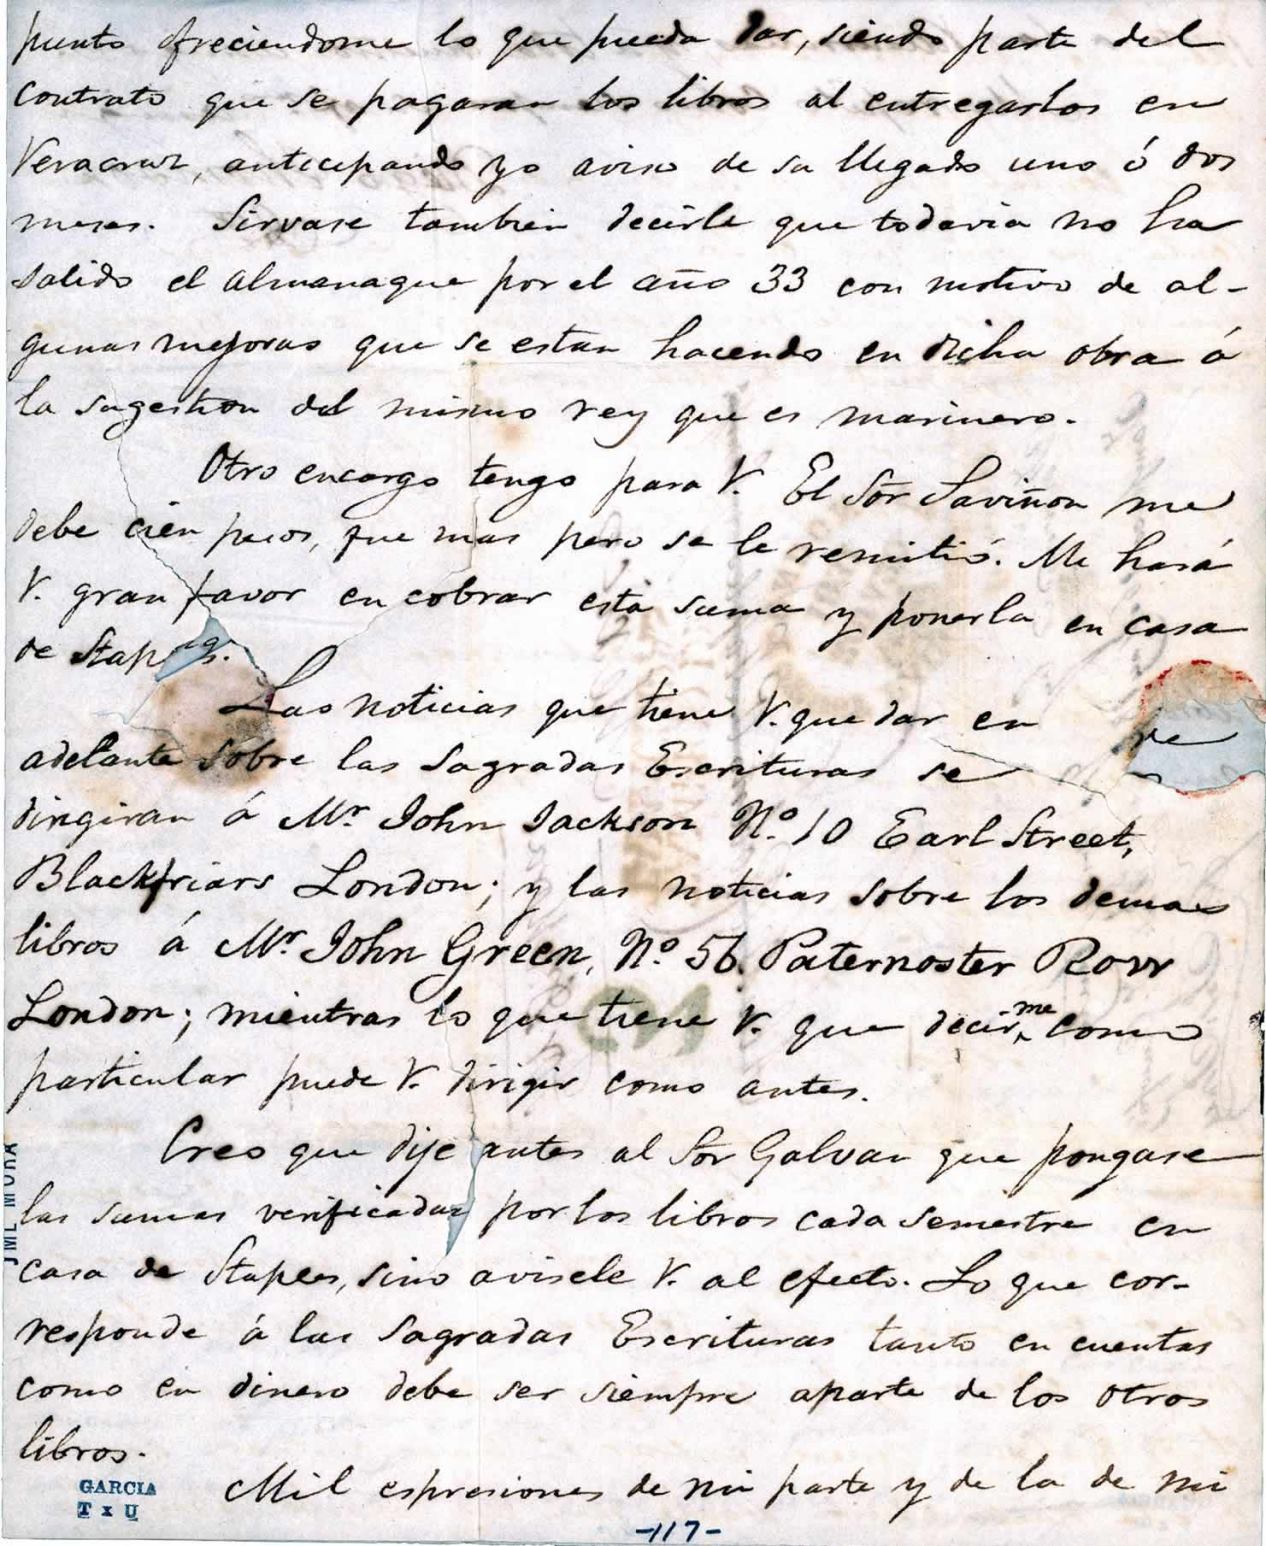 punto ofreciendome lo que pueda dar, siendo parte del
contrato que se pagaran los libros al entregarlos en
Veracruz, anticipando yo aviso de su llegado uno ó dos
meses. Sirvase tambien decirle que todavia no ha
salido el almanaque por el año 33 con motivo de al-
gunas mejoras que se estan haciendo en dicha obra á
la sugestion del mismo rey que es marinero.
Otro encargo tengo para V. El Sōr Saviñon me
debe cien pesos, que mas pero se le remitió. Me hará
V. gran favor en cobrar esta suma y ponerla en casa
de Staples.
Las noticias que tiene V. que dar en
re
adelante sobre las Sagradas Escrituras se
dirigiran á Mr. John Jackson No. 10 Earl Street,
Blackfriars London; y las noticias sobre los demas
libros á Mr. John Green, No. 56. Paternoster Row
London; mientras lo que tiene V. que decirme como
particular puede V. dirigir como antes.
Creo que dije antes al Sōr Galvan que pongase
las sumas verificadas por los libros cada semestre en
casa de Staples, sino avisele V. al efecto. Lo que cor-
responde á las Sagradas Escrituras tanto en cuentas
como en dinero debe ser siempre aparte de los otros
libros.
Mil espresiones de mi parte y de la de mi
JML MORA
GARCIA
T x U
-117-